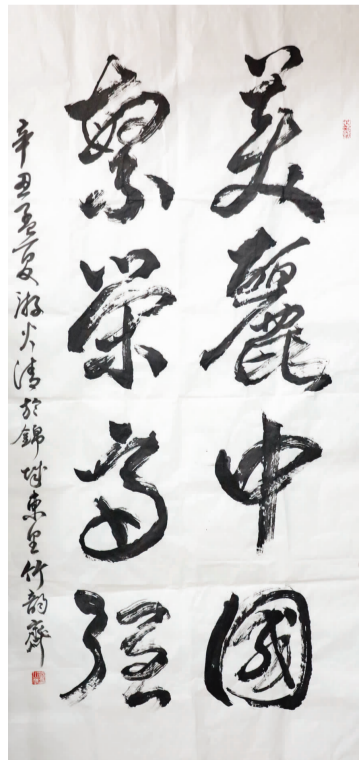 美麗中國
繁榮富强
辛丑孟夏游火清於錦城東里竹韵齋